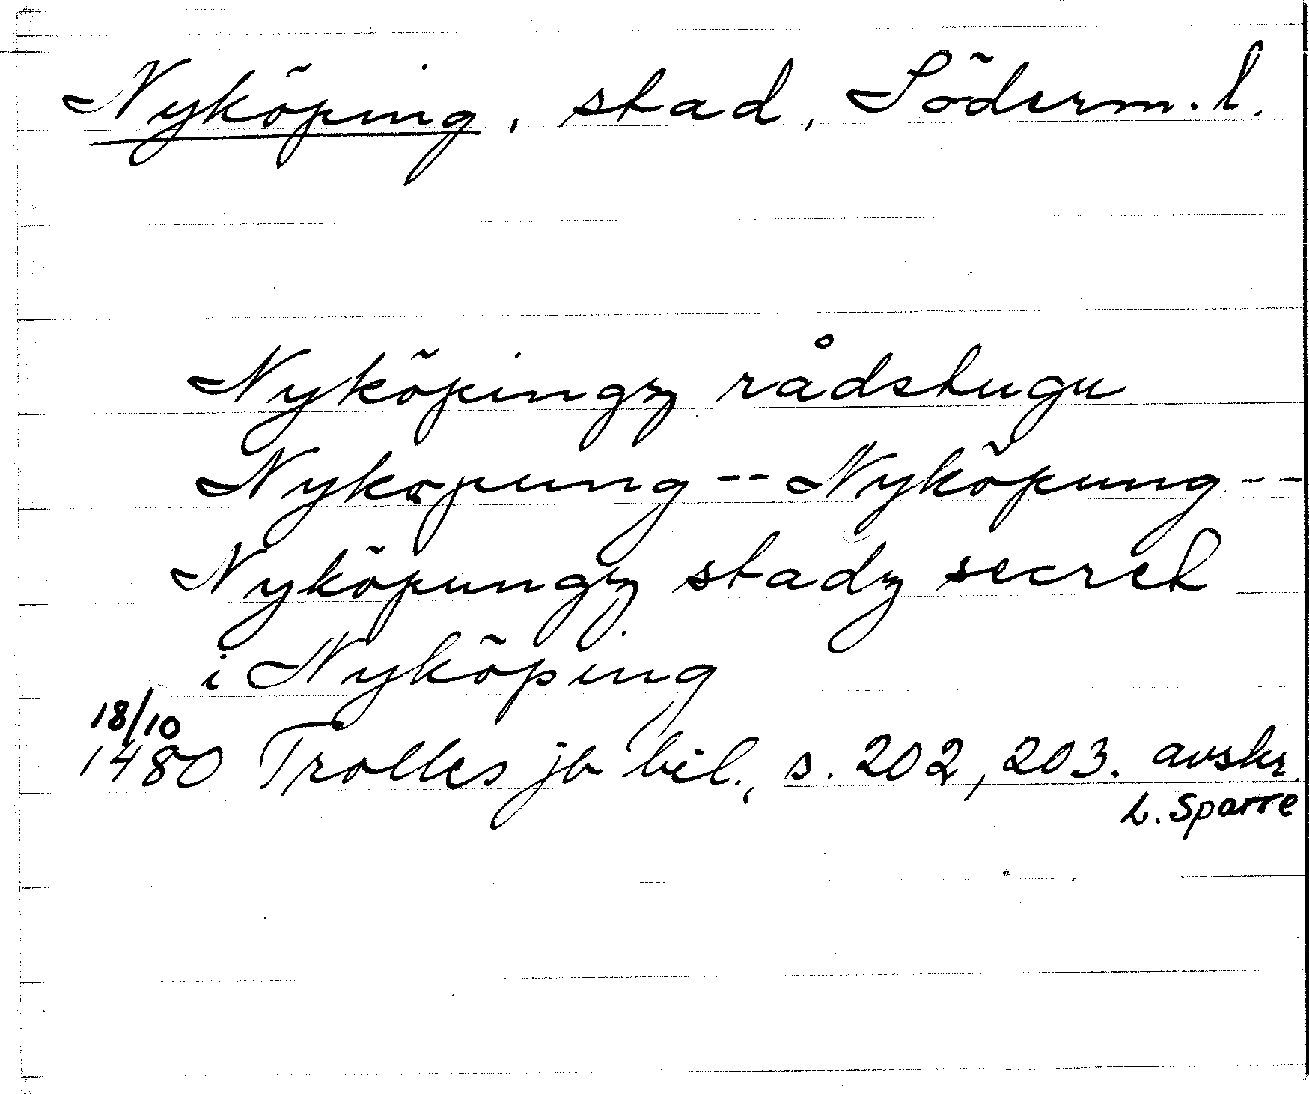 Nyköping, stad, Söderm. l.
Nyköpingz rådstugu
Nykopung -- Nyköpung --
Nyköpungz stadz secret
i Nyköping
18/10
1480 Trolles jb bil., s. 202, 203. avskr.
L. Sparre